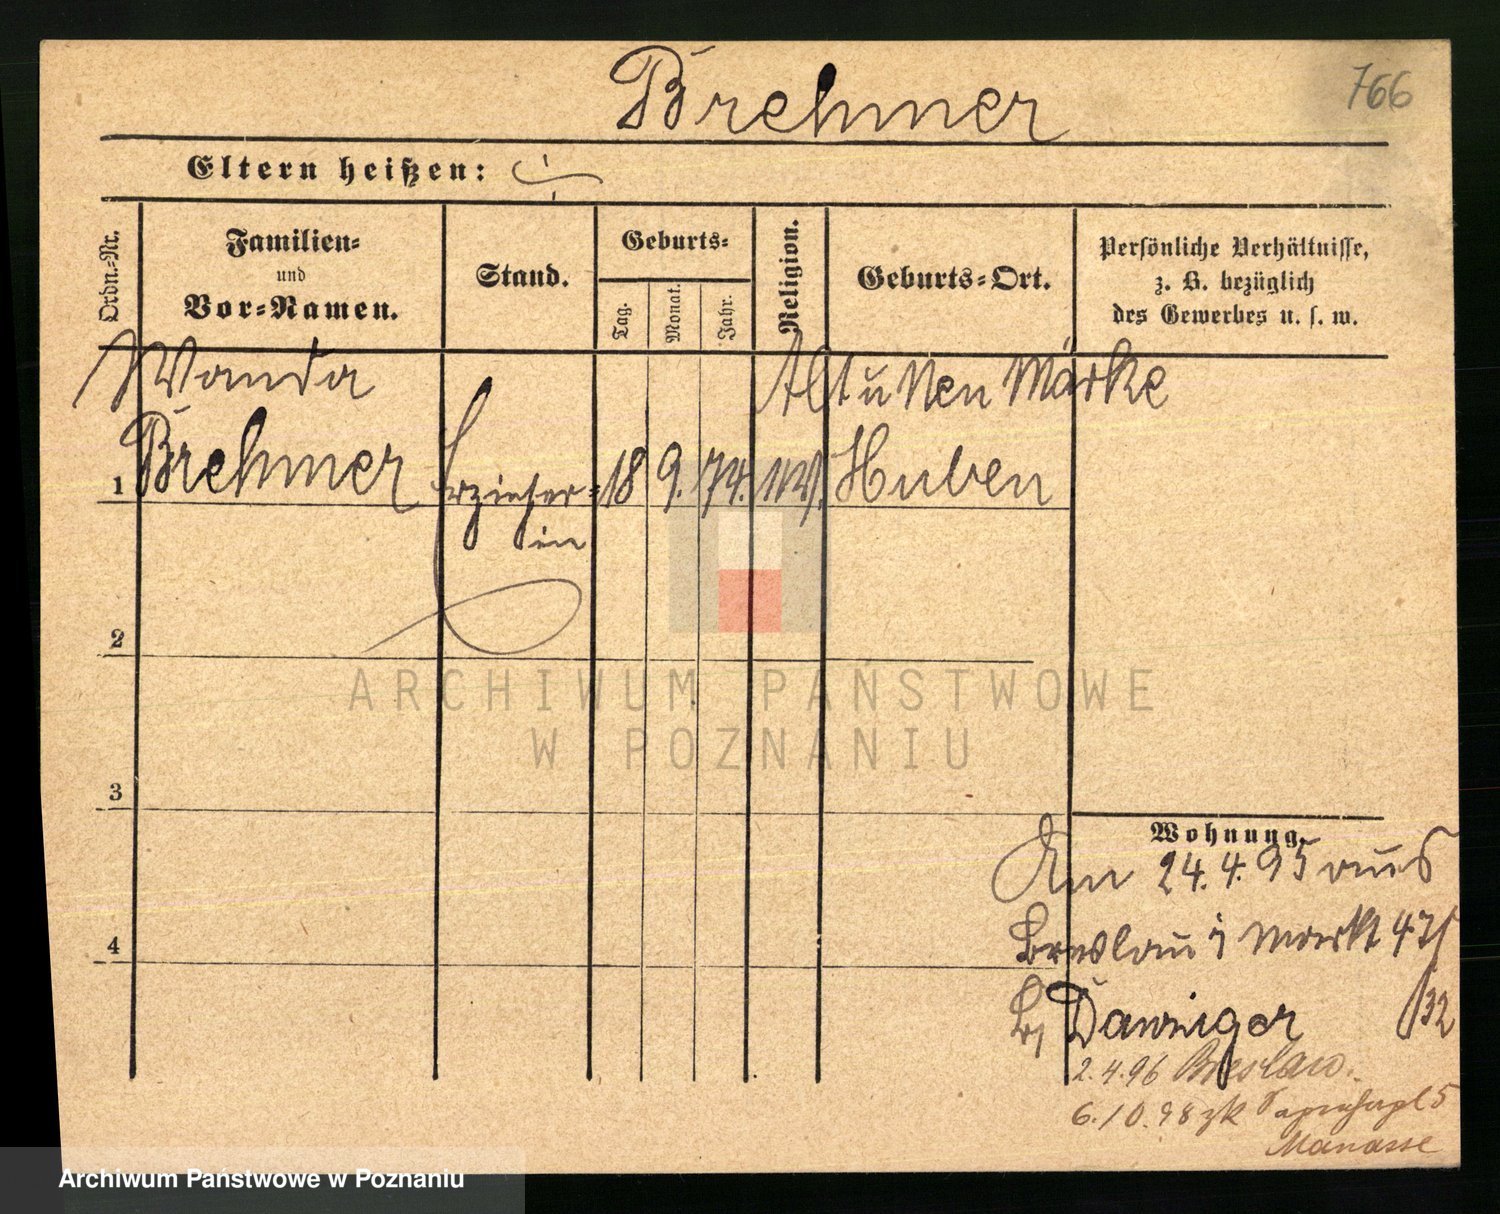 766
Brehmer
Eltern heißen:
Ordn.-Nr.
Familien-
und
Vor-Namen.
Stand.
Geburts-
Tag.
Monat.
Jahr.
Religion.
Geburts-Ort.
Persönliche Verhältnisse,
z. B. bezüglich
des Gewerbes u. s. w.
Wanda
Brehmer
Erzieher-
in
1
18
9.
74.
Alt u Neu Marke
Huben
2
3
4
Wohnung.
Am 24.4.95 aus
Breslau Markt 47/
b/ Danziger /32
2.4.96 Breslau.
6.10.98 zk 5
Manasse
ARCHIWUM PAŃSTWOWE
W POZNANIU
Archiwum Państwowe w Poznaniu